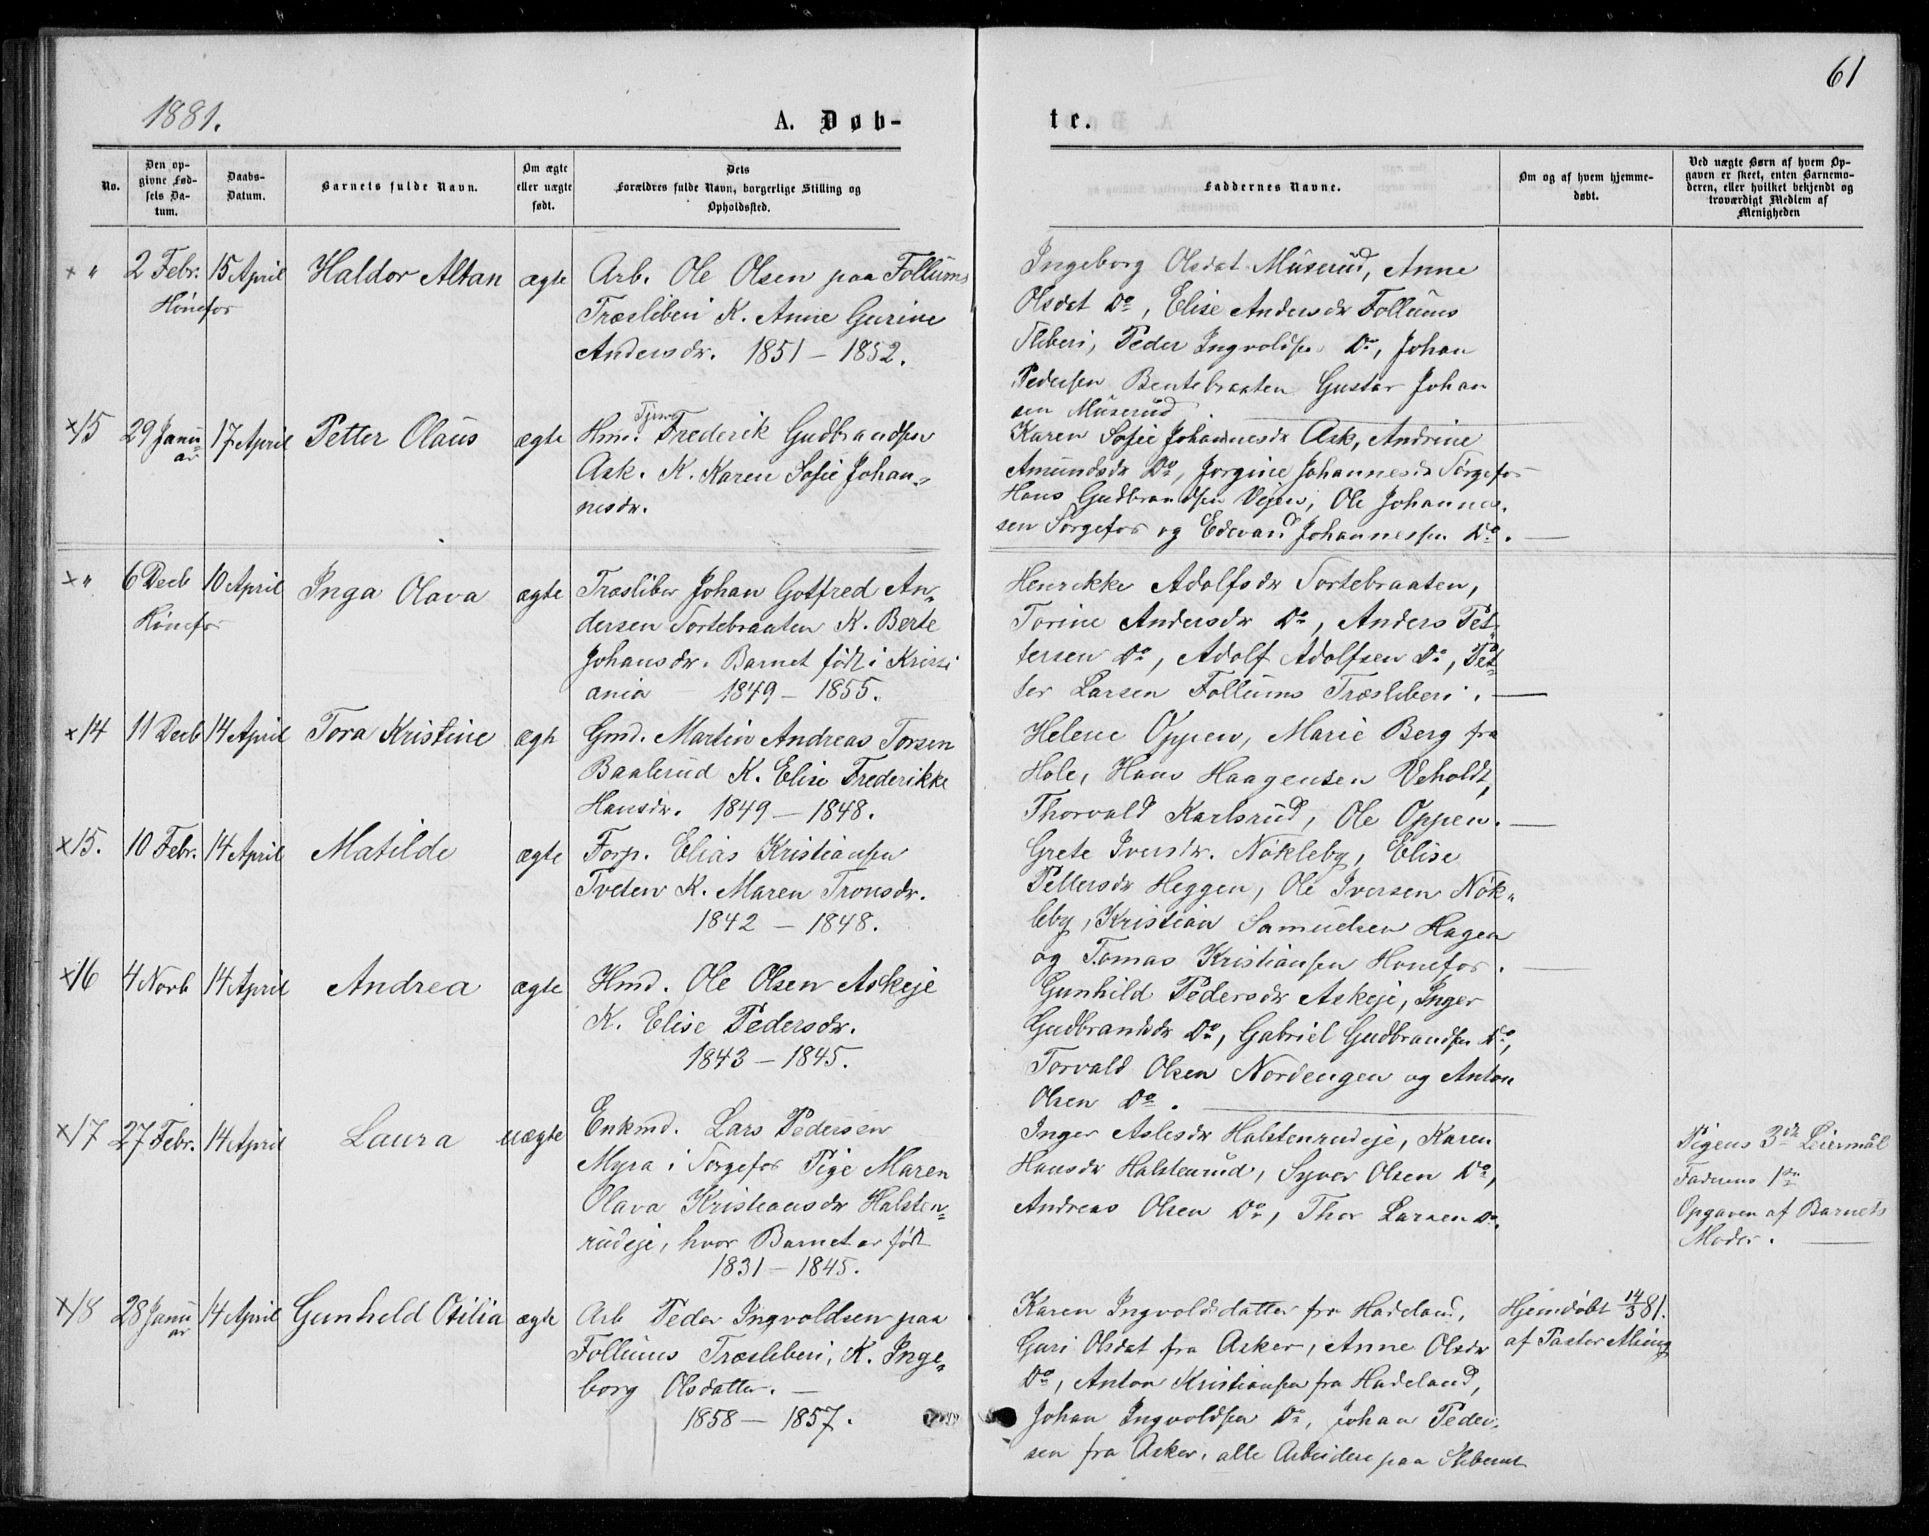 61
1881.
A. Døb-
te.
No.
Den op-
givne Fød-
sels Da-
tum.
Daabs-
Datum.
Barnets fulde Navn.
Om ægte
eller uægte
født.
Dets
Forældres fulde Navn, borgerlige Stilling og
Opholdssted.
Faddernes Navne.
Om og af hvem hjemme-
døbt.
Ved uægte Børn af hvem Op-
gaven er skeet, enten Barnemo-
deren, eller hvilket bekjendt og
troværdigt Medlem af
Menigheden
× " 2 Febr. 15 April Haldor Altan ægte Arb. Ole Olsen paa Follums
Hönefos
Træsliberi K. Anne Gurine
Andersdr. 1851 – 1852.
Ingeborg Olsdat Müserud, Anne
Olsdat Do, Elise Andersdr Follums
Sliberi, Peder Ingvoldsen Do, Johan
Pedersen Bentebraaten Gustav Johan
sen Müserud
×15 29 Janu 17 April Petter Olaus ægte Hmd. Frederik Gudbrandsen
ar
Tjen
Ask. K. Karen Sofie Johan-
nesdr.
Karen Sofie Johannesdr Ask, Andrine
Amundsdr Do, Jorgine Johannesdr Sørgefos
Hans Gudbrandsen Vejen, Ole Johannes-
sen Sørgefos og Edevard Johannessen Do. —
× " 6 Decb 10 April Inga Olava ægte Træsliber Johan Gotfred An-
Hönefos
dersen Tortebraaten K. Berte
Johansdr. Barnet født i Kristi
ania — 1849 – 1855.
Henrikke Adolfsdr Tortebraaten,
Torine Andersdr Do, Anders Pet-
tersen Do, Adolf Adolfsen Do, Pet-
ter Larsen Follums Træsliberi. —
×14 11 Decb 14 April Tora Kristine ægte Gmd. Martin Andreas Torsen
Baalerud K. Elise Frederikke
Hansdr. 1849 – 1848.
Helene Oppen, Marie Berg fra
Hole, Hans Haagensen Veholdt,
Thorvald Karlsrud, Ole Oppen. —
×15. 10 Febr. 14 April Matilde ægte Forp. Elias Kristiansen
Tveten K. Maren Tronsdr.
1842 – 1848.
Grete Iversdr. Nökleby, Elise
Pettersdr Heggen, Ole Iversen Nök-
leby, Kristian Samuelsen Hagen
og Tomas Kristiansen Honefos. —
×16 4 Novb 14 April Andrea ægte Hmd. Ole Olsen Askeje
K. Elise Pedersdr.
1843 – 1845.
Gunhild Pedersdr Askeje, Inger
Gudbrandsdr Do, Gabriel Gudbrandsen Do,
Torvald Olsen Nordengen og Anton
Olsen Do. —
×17 27 Febr. 14 April Laura uægte Enkmd. Lars Pedersen
Myra i Sørgefos Pige Maren
Olava Kristiansdr Halsten-
rudeje, hvor Barnet er født
1831 – 1845.
Inger Aslesdr Halstenrudeje, Karen
Hansdr Halstenrud, Syver Olsen Do,
Andreas Olsen Do, Thor Larsen Do.
Pigens 3die Leiermål
Faderens 1ste
Opgaven af Barnets
Moder. —
×18 28 Janu 14 April Gunhild Otilia ægte Arb Peder Ingvoldsen paa
ar
Follums Træsliberi, K. Inge-
borg Olsdatter. —
1858 – 1857.
Karen Ingvoldsdatter fra Hadeland,
Guri Olsdat fra Asker, Anne Olsdr
Do, Anton Kristiansen fra Hadeland,
Johan Ingvoldsen Do, Johan Peder-
sen fra Asker, alle Arbeidere paa Sliberiet
Hjemdøbt 14/3 81.
af Pastor